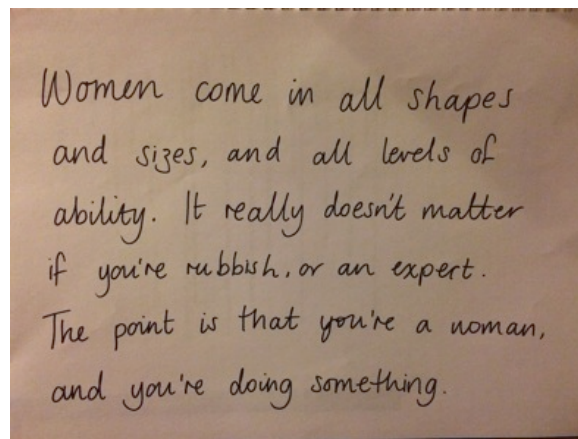 Women come in all shapes
and sizes, and all levels of
ability. It really doesn't matter
if you're rubbish, or an expert.
The point is that you're a woman,
and you're doing something.